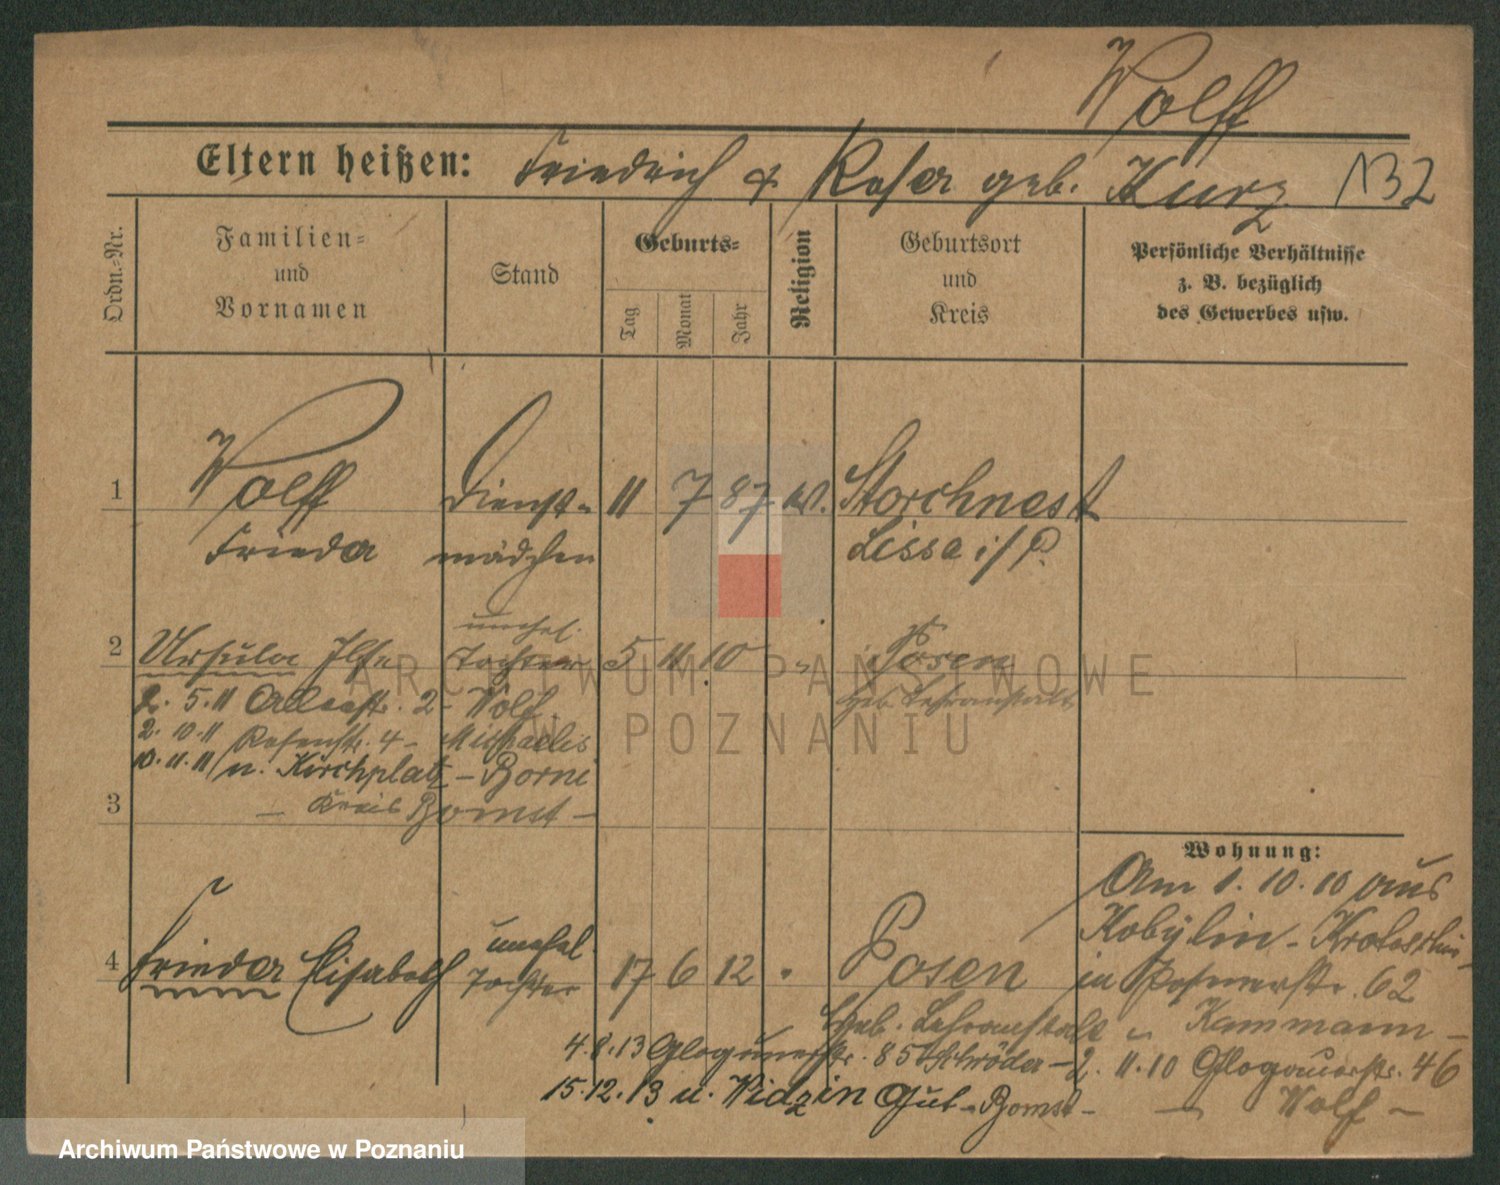 Wolff
Eltern heißen: Friedrich & Rosa geb. Kurz 132
Ordn.-Nr.
Familien-
und
Vornamen
Stand
Geburts-
Tag
Monat
Jahr
Religion
Geburtsort
und
Kreis
Persönliche Verhältnisse
z. B. bezüglich
des Gewerbes usw.
1 Wolff Dienst- 11 7 87 Storchnest
Frieda mädchen Lissa i/P.
unehel.
2 Ursula Ilse Tochter 5 11 10 " Posen
2. 5. 11 2 - Wolf Heb. Lehranstalt
2. 10. 11 Rosenstr. 4 - Michaelis
10. 11. 11 n. Kirchplatz - Borui
3 - Kreis Bomst -
Wohnung:
Am 1. 10. 10 aus
Kobylin - Krotoschin
unehel.
4 Frieda Elisabeth Tochter 17 6 12 " Posen in Posenerstr. 62
Heb. Lehranstalt " Kammann -
4. 8. 13 Glogauerstr. 85 Schröder - 2. 11. 10 Glogauerstr. 46
15. 12. 13 n. Widzin Gut - Bomst - - Wolf -
ARCHIWUM PAŃSTWOWE
W POZNANIU
Archiwum Państwowe w Poznaniu